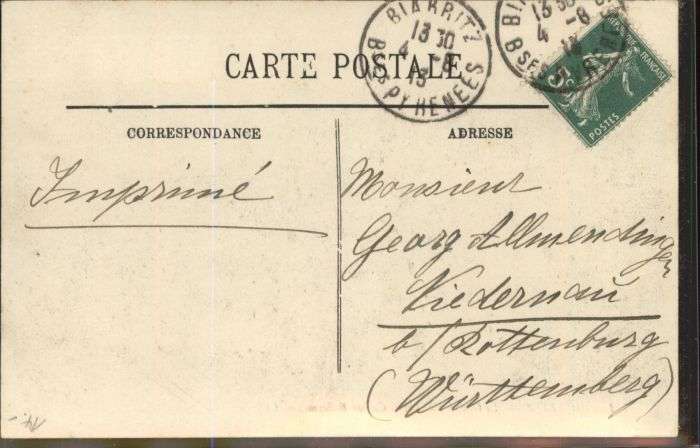 BIARRITZ
13 30
4 - 8
13
BSES PYRENEES
BIARRITZ
13 30
4 - 8
13
CARTE POSTALE
5
FRANÇAISE
POSTES
CORRESPONDANCE
ADRESSE
Imprimé
Monsieur
Georg Allmendinger
Niedernau
b/Rottenburg
(Württemberg)